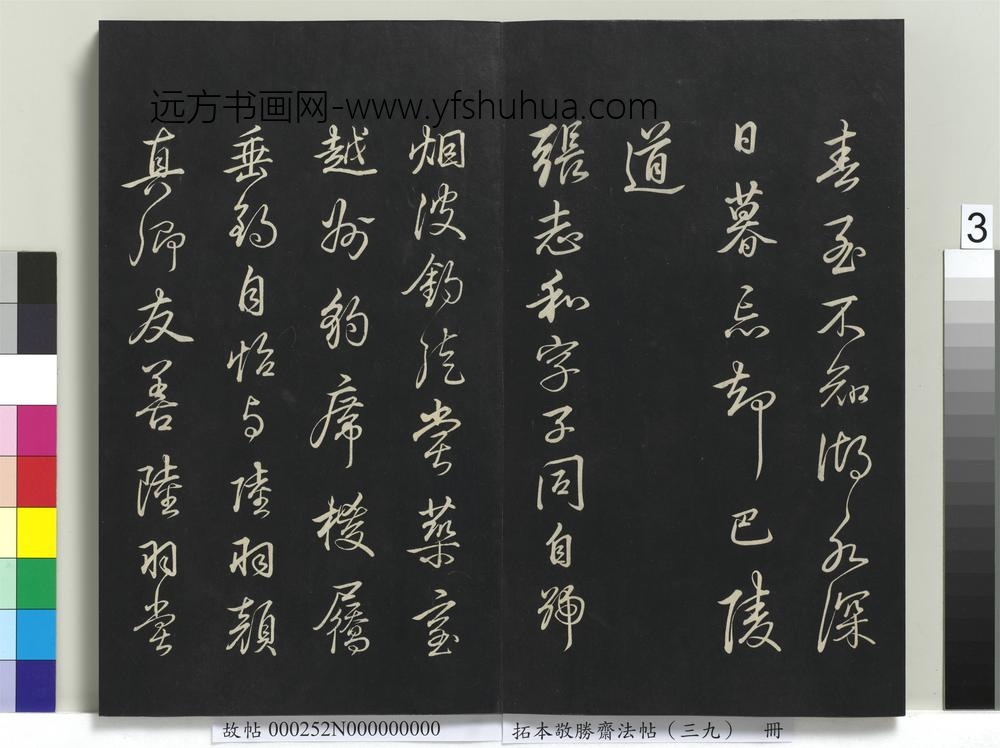 远方书画网-www.yfshuhua.com
春至不知湖水深
日暮忘却巴陵
道
張志和字子同自號
烟波釣徒嘗築室
越州豹席椶屩
垂釣自怡与陸羽顔
真卿友善陸羽嘗
3
故帖 000252N000000000
拓本敬勝齋法帖（三九） 冊